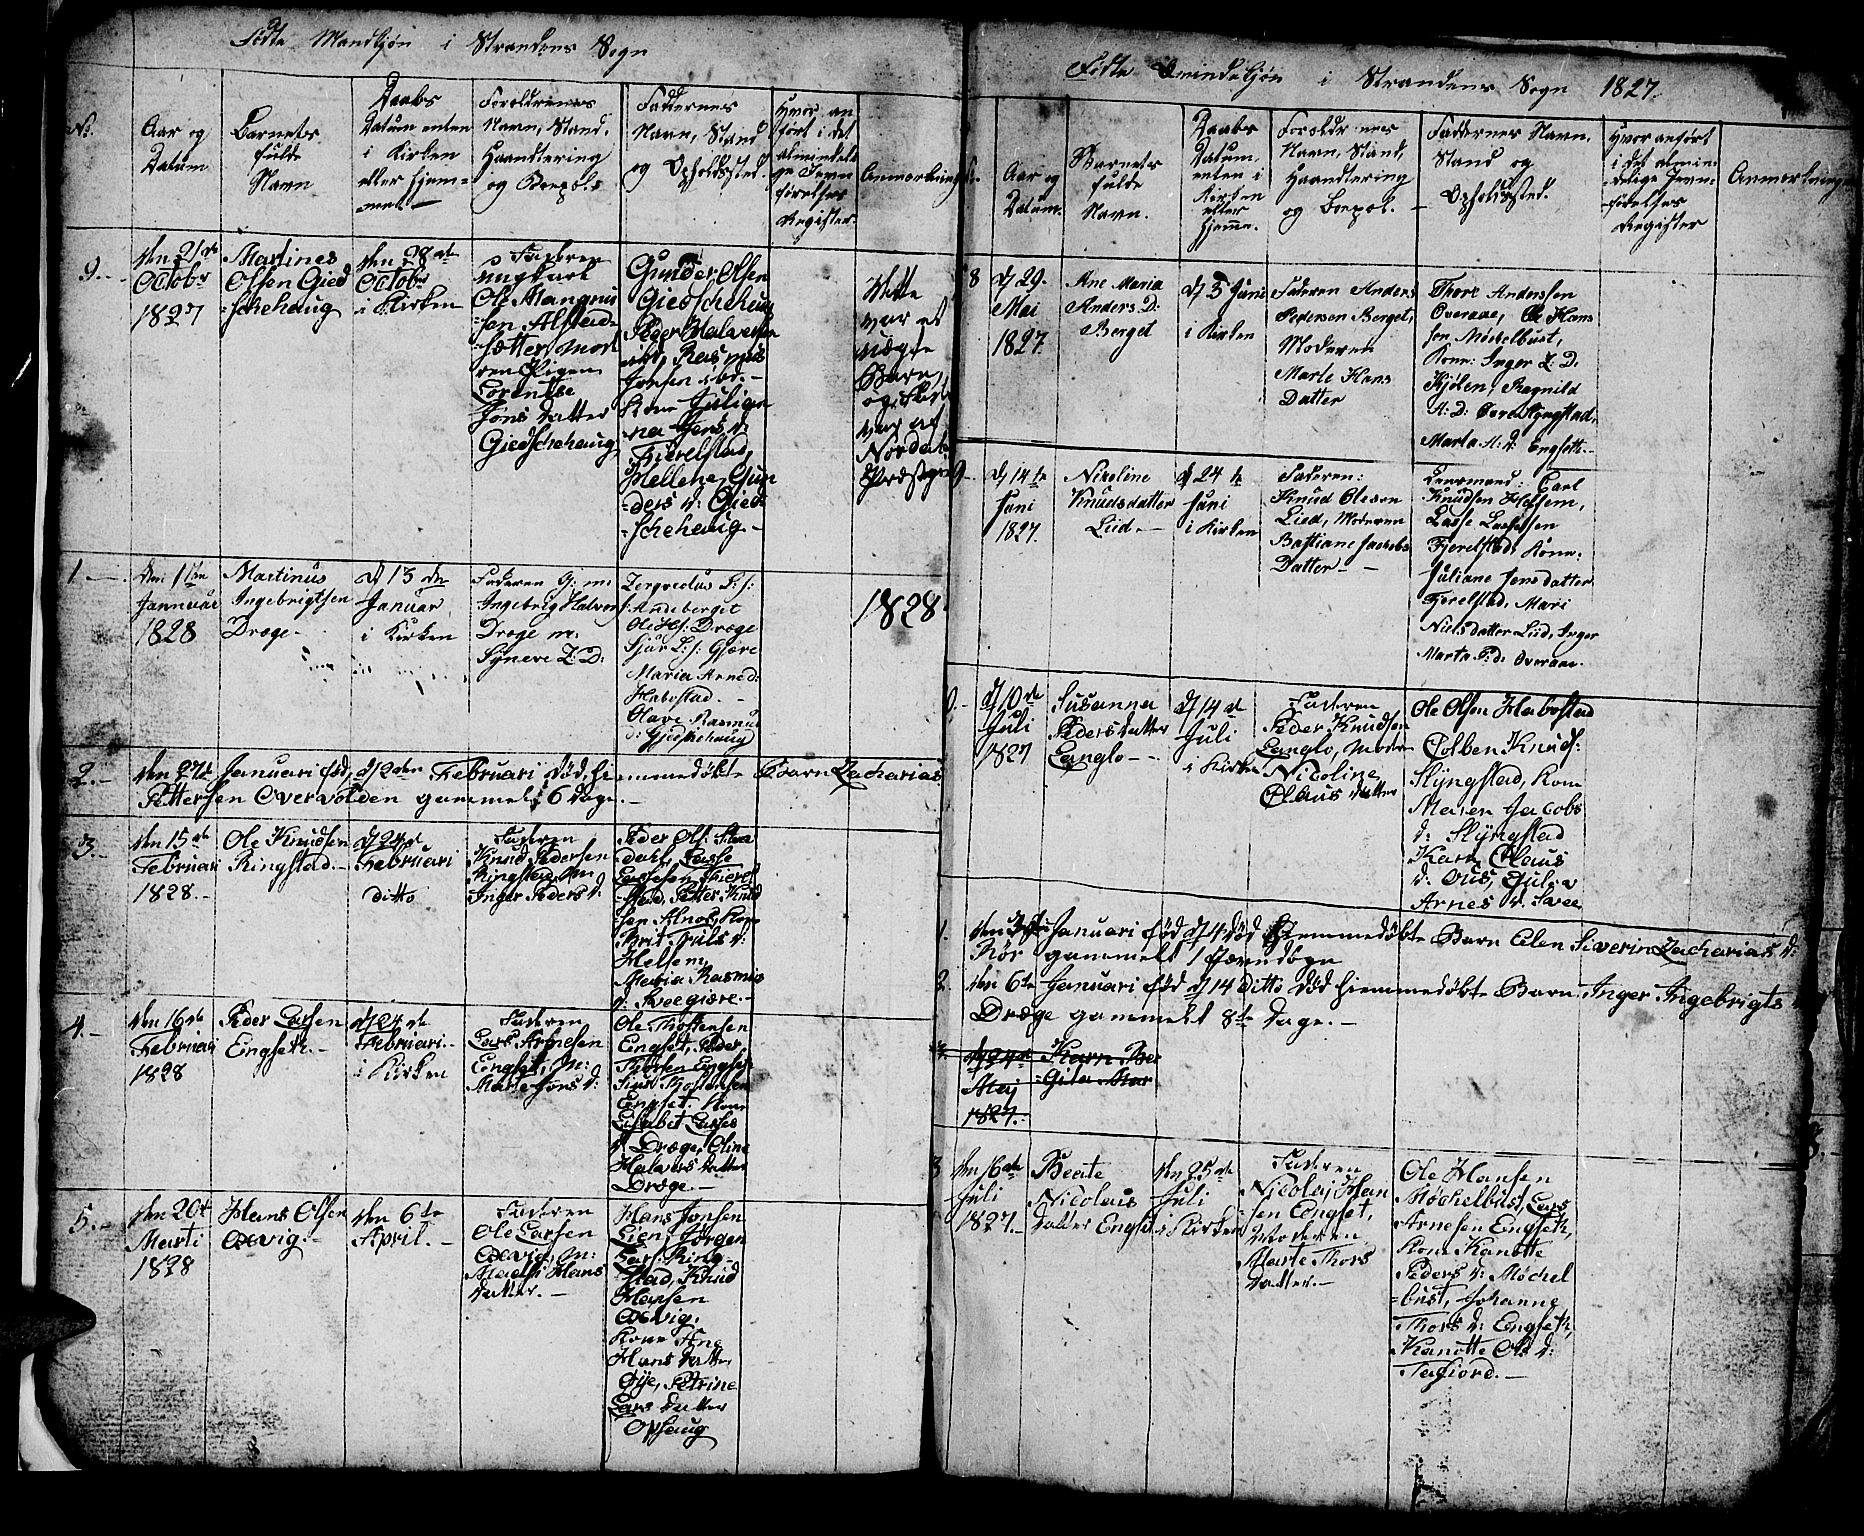 Fødte Mandkjøn i Strandens Sogn
No.
Aar og
Datum
Barnets
fulde
Navn
Daabs
Datum enten
i Kirken
eller hjem=
met
Forældrenes
Navn, Stand,
Haandtering
og Boepæl
Faddernes
Navn, Stand
og Opholdssted.
Hvor an
ført i det
almindeli
ge Jevn
førelses
Register
Anmærkninger
9.
den 21de
Octobr
1827
Martines
Olsen Gied
=schehaug
den 28de
Octobr
i Kirken
Faderen
ungkarl
Ole Mangnu
sen Alstad=
sætter, Mod
ren Pigen
Lorentse
Jons Datter
Giedschehaug
Gunder Olsen
Giedschehaug
Peder Halvorsen
ibd, Rasmus
Jonsen ibd.
Kone Julian
na Jens d:
Fierelstad,
Hellene, Gun
ders d: Gied
=schehaug.
Dette
var et
uægte
Barn,
og
var af
Norddals
Præstegield
1
Den 1ste
Jannuar
1828
Martinus
Ingebrigtsen
Dræge
d 13de
Januar
i Kirken
Faderen G: m:
Ingebrig Halvors
Dræge m:
Syneve L: D:
L: s:
Andeberget
Ole H s: Dræge
Sjur L: s: Gjære
Maria Arne d:
Habostad
Olave Rasmus
d: Gjedschehaug
1828
2.
den 27de Januari fød, d 2den Februari død, hiemmedøbte Barn Zacharias
Pettersen Overvolden gammel 6 Dage.
3.
den 15de
Februari
1828.
Ole Knudsen
Ringstad.
d 24de
Februari
ditto
Faderen
Knud Pedersen
Ringstad, M
Inger Peders d:
Peder Ols: Stra
dahl, Lasse
Lassesen Fierel
stad, Petter Knud
sen Alnes, Kone
Brit Juls d:
Helsem,
Maria Rasmus
d: Sveegiære.
4.
den 16de
Februari
1828
Peder Larsen
Engseth.
d 24de
Februari.
i Kirken
Faderen
Lars Arnesen
Engset, M:
Marte Jons d:
Ole Thostensen
Engset, Peder
Thorsen Engset
Siur Thostensen
Engset. Kone
Elisabet Lasses
d Dræge, Oline
Halvors datter
Dræge.
5.
den 20de
Marti
1828
Hans Olsen
Oxvig.
den 6te
April.
Faderen
Ole Larsen
Oxvig, M:
Madli Hans
datter.
Hans Jonsen
Lien, Jørgen
Lars: Ring
stad, Knud
Hansen
Oxvig.
Kone Ane
Hans Datter
Øye, Petrine
Lars Datter
Ophaug
Fødte Qvindekjøn i Strandens Sogn 1827.
Aar og
Datum.
Barnets
fulde
Navn.
Daabs
Datum.
enten i
Kirken
eller
hjeme.
Forældrenes
Navn, Stand,
Haandtering
og Boepæl.
Faddernes Navn.
Stand og
Opholdssted.
Hvor anført
i det almin=
delige Jevn=
førelses
Register
Anmærkninger
8
d 29.
Mai
1827.
Ane Maria
Anders D:
Berget
d 3 Juni
i Kirken
Faderen Anders
Pedersen Berget,
Moderen
Marte Hans
Datter
Thore Anderssen
Overaae, Ole Hans
sen Møchelbust,
Kone: Inger L: D:
Kjølen, Ragnild
A: D: Øvre Slyngstad.
Marta A: d: Engseth.
9
d 14te
Juni
1827.
Nikoline
Knudsdatter
Liid.
d 24te
Juni
i Kirken
Faderen:
Knud Olesen
Liid, Moderen
Bastiane Jachobs
Datter
Lensmand: Carl
Knudsen Helsem,
Lasse Lassesen
Fjerelstad, Kone:
Juliane Jensdatter
Fjerelstad, Mari
Nielsdatter Liid, Inger
Marta P: d: Overaae.
0.
d 10de
Juli
1827
Susanna
Pedersdatter
Langlo
d 14de
Juli
i Kirken
Faderen
Peder Knudsen
Langlo, Moder
Nicoline
Claus datter
Ole Olsen Habostad
Colben Knuds:
Slyngstad, Kone
Maren Jacobs
d: Slyngstad
Karn Claus
d: Ous, Gulev
Arnes d: Svee
1.
Januari fød d 4 død hiemmedøbte Barn Elen Siverine Zacharias d:
Rør gammelt 1 Jevndøgn
2.
den 6te Januari fød d 14 ditto død hiemmedøbte Barn Inger Ingebrigts d
Dræge gammelt 8te Dage.
d 24de
Maj
1827.
Karn Ber
=Gita Mar
3
den 16de
Juli
1827.
Beate
Nicolais
datter Engset
den 25de
Juli
i Kirken
Faderen
Nicolaj Han
sen Engset,
Moderen
Marte Thors
Datter.
Ole Hansen
Møchelbust, Lars
Arnesen Engseth,
Kone Kanotte
Peders d: Møchel
=bust, Johanne
Thors d: Engseth,
Kanotte Ols d:
Tafiord.